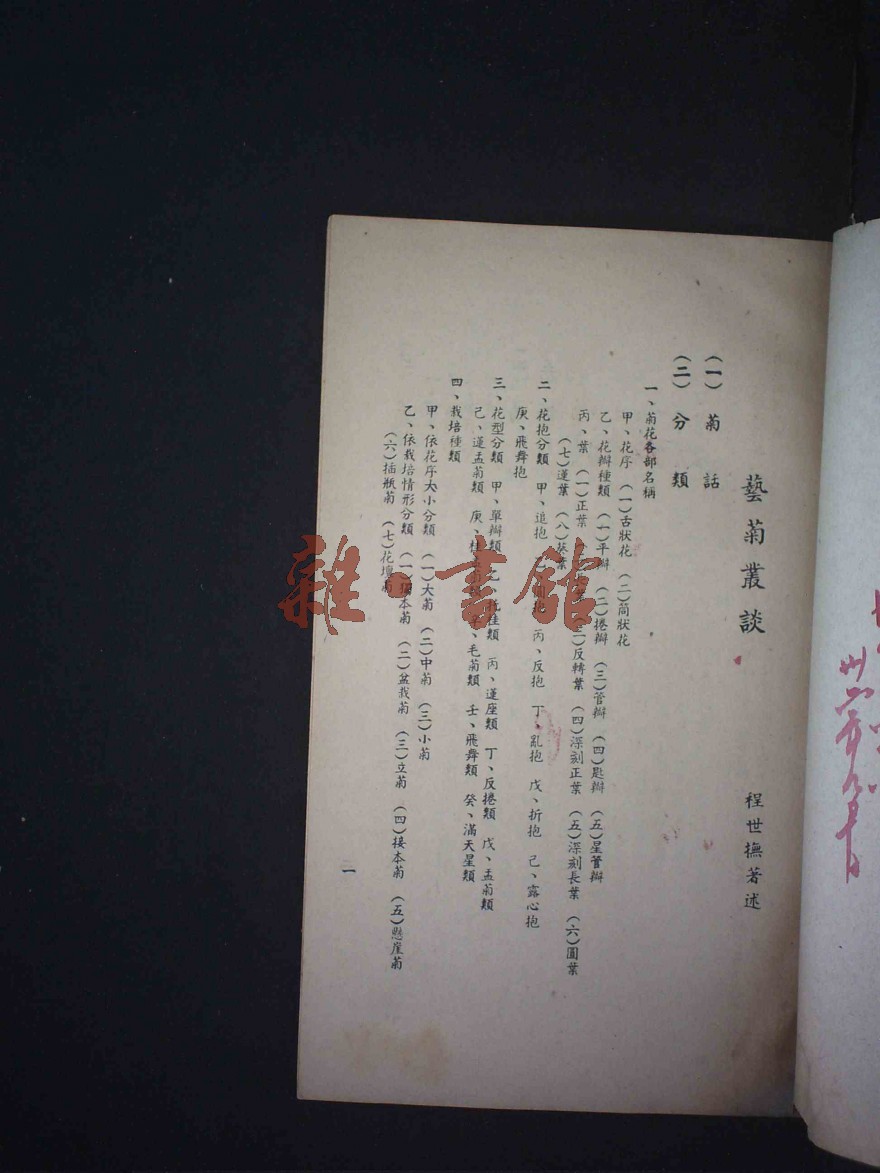 藝菊叢談
程世撫著述
(一) 菊話
(二) 分類
一、菊花各部名稱
甲、花序 (一)舌狀花 (二)筒狀花
乙、花瓣種類 (一)平瓣 (二)捲瓣 (三)管瓣 (四)匙瓣 (五)星管瓣
丙、葉 (一)正葉 反轉葉 (四)深刻正葉 (五)深刻長葉 (六)圓葉
(七)蓬葉 (八)葵葉
二、花抱分類 甲、追抱 抱 丙、反抱 丁、亂抱 戊、折抱 己、露心抱
庚、飛舞抱
三、花型分類 甲、單瓣類 桂類 丙、蓮座類 丁、反捲類 戊、盂菊類
己、蓮盂菊類 庚、 毛菊類 壬、飛舞類 癸、滿天星類
四、栽培種類
甲、依花序大小分類 (一)大菊 (二)中菊 (三)小菊
乙、依栽培情形分類 (一)獨本菊 (二)盆栽菊 (三)立菊 (四)接本菊 (五)懸崖菊
(六)插瓶菊 (七)花壇菊
一
雜·書館